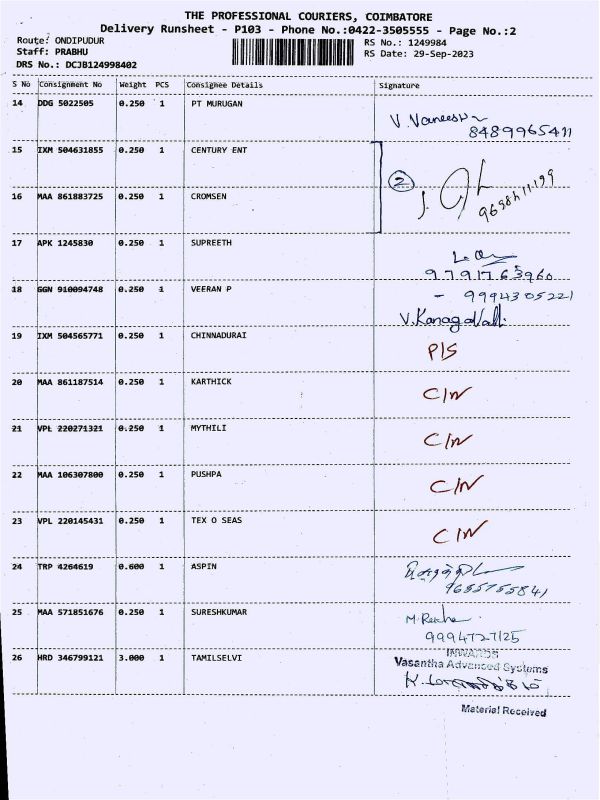 THE PROFESSIONAL COURIERS, COIMBATORE
Delivery Runsheet - P103 - Phone No.:0422-3505555 - Page No.:2
Route: ONDIPUDUR
RS No.: 1249984
Staff: PRABHU
RS Date: 29-Sep-2023
DRS No.: DCJB124998402
S No Consignment No Weight PCS Consignee Details Signature
14 DDG 5022505 0.250 1 PT MURUGAN
V. Vaneesh
8489965411
15 IXM 504631855 0.250 1 CENTURY ENT
2
16 MAA 861883725 0.250 1 CROMSEN
17 APK 1245830 0.250 1 SUPREETH
9791763960
18 GGN 910094748 0.250 1 VEERAN P
- 9994305221
V. Kanagavalli
19 IXM 504565771 0.250 1 CHINNADURAI
P/S
20 MAA 861187514 0.250 1 KARTHICK
C/N
21 VPL 220271321 0.250 1 MYTHILI
C/N
22 MAA 106307800 0.250 1 PUSHPA
C/N
23 VPL 220145431 0.250 1 TEX O SEAS
C/N
24 TRP 4264619 0.600 1 ASPIN
9655755841
25 MAA 571851676 0.250 1 SURESHKUMAR
M. Rekha
9994727125
26 HRD 346799121 3.000 1 TAMILSELVI
INWARDS
Vasantha Advanced Systems
Material Received